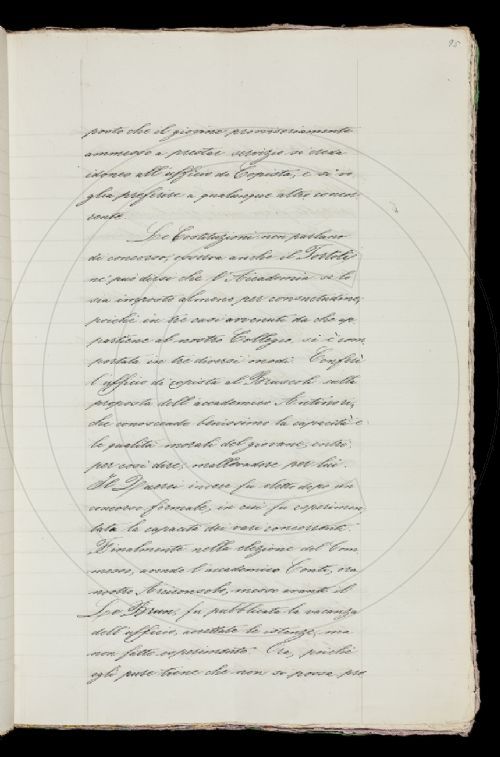 95
posto che il giovine provvisoriamente
ammesso a prestar servizio si creda
idoneo all'uffizio di Copista, e si vo
glia preferire a qualunque altro concor
rente.
Le Costituzioni non parlano
di concorso, osserva anche il Tortoli
nè può dirsi che l'Accademia se lo
sia imposto almeno per consuetudine,
poichè in tre casi avvenuti da che ap
partiene al nostro Collegio, si è com
portata in tre diversi modi. Conferì
l'uffizio di copista al Bruscoli sulla
proposta dell'accademico Antinori,
che conoscendo benissimo la capacità e
le qualità morali del giovane, entrò,
per così dire, mallevadore per lui.
Il Guerri invece fu eletto dopo un
concorso formale, in cui fu esperimen
tata la capacità dei vari concorrenti.
Finalmente nella elezione del Com
messo, avendo l'accademico Conti, ora
nostro Arciconsolo, messo avanti il
Le Brun, fu pubblicata la vacanza
dell'uffizio, accettate le istanze, ma
non fatto esperimento. Ora, poichè
egli pure tiene che non si possa pre